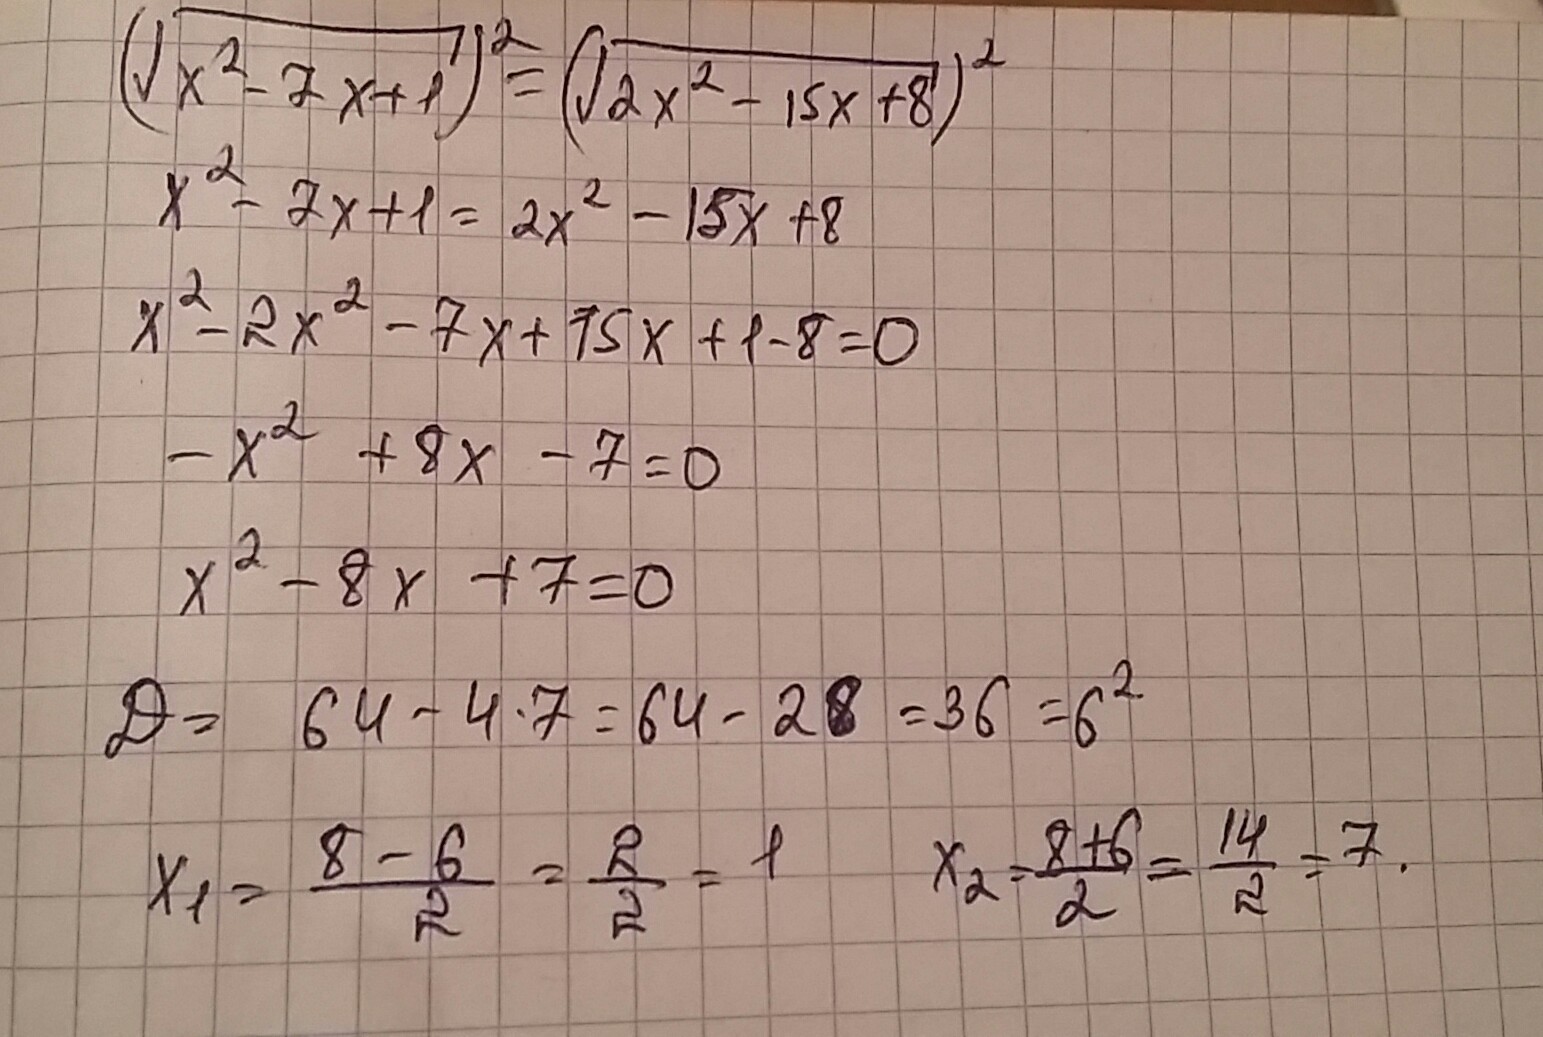 (√x² - 7x + 1)² = (√2x² - 15x + 8)²
x² - 7x + 1 = 2x² - 15x + 8
x² - 2x² - 7x + 15x + 1 - 8 = 0
-x² + 8x - 7 = 0
x² - 8x + 7 = 0
D = 64 - 4·7 = 64 - 28 = 36 = 6²
x₁ = (8 - 6)/2 = 2/2 = 1 x₂ = (8+6)/2 = 14/2 = 7.